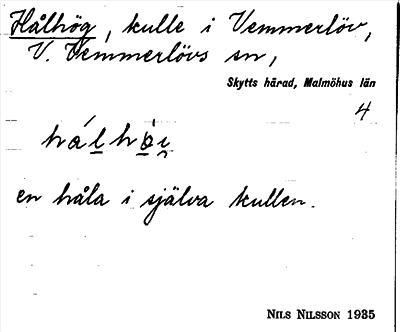 Hålhög, kulle i Vemmerlöv,
V. Vemmerlövs sn,
Skytts härad, Malmöhus län
4
en håla i själva kullen.
NILS NILSSON 1935